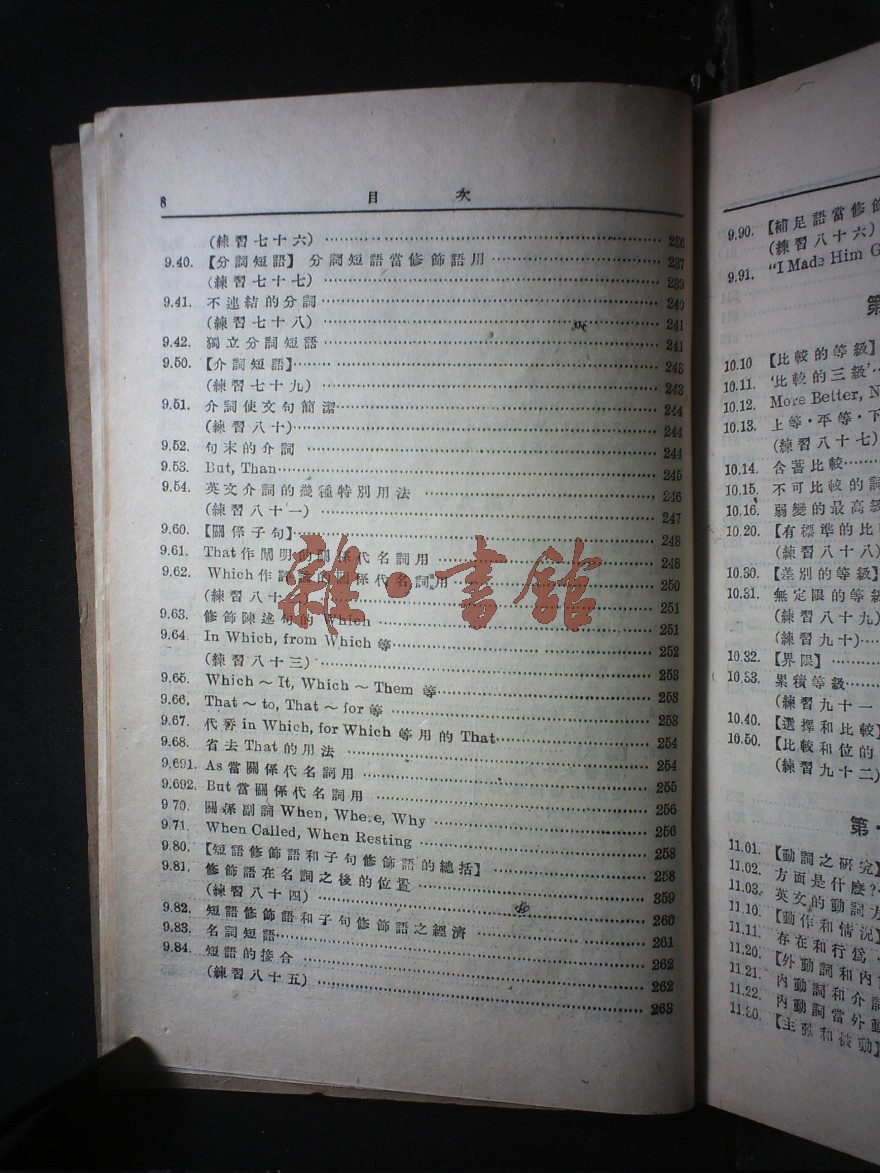 8 目 次
(練習七十六) 236
9.40. 【分詞短語】 分詞短語當修飾語用 237
(練習七十七) 239
9.41. 不連結的分詞 240
(練習七十八) 241
9.42. 獨立分詞短語 241
9.50. 【介詞短語】 243
(練習七十九) 243
9.51. 介詞使文句簡潔 244
(練習八十) 244
9.52. 句末的介詞 244
9.53. But, Than 245
9.54. 英文介詞的幾種特別用法 246
(練習八十一) 247
9.60. 【關係子句】 248
9.61. That 作闡明的關係代名詞用 248
9.62. Which 作 的關係代名詞用 250
(練習八十 251
9.63. 修飾陳述句的 Which 251
9.64. In Which, from Which 等 252
(練習八十三) 253
9.65. Which ~ It, Which ~ Them 等 253
9.66. That ~ to, That ~ for 等 253
9.67. 代替 in Which, for Which 等用的 That 254
9.68. 省去 That 的用法 254
9.691. As 當關係代名詞用 255
9.692. But 當關係代名詞用 256
9 70. 關係副詞 When, Where, Why 256
9.71. When Called, When Resting 258
9.80. 【短語修飾語和子句修飾語的總括】 258
9.81. 修飾語在名詞之後的位置 359
(練習八十四) 260
9.82. 短語修飾語和子句修飾語之經濟 261
9.83. 名詞短語 262
9.84. 短語的接合 262
(練習八十五) 263
雜·書館
9.90. 【補足語當修飾
(練習八十六)
9.91. "I Made Him G
第
10.10 【比較的等級】
10.11. '比較的三級'
10.12. More Better, N
10.13. 上等·平等·下
(練習八十七)
10.14. 含蓄比較
10.15. 不可比較的詞
10.16. 弱變的最高級
10.20. 【有標準的比
(練習八十八)
10.30. 【差別的等級】
10.31. 無定限的等級
(練習八十九)
(練習九十)
10.32. 【界限】
10.33. 累積等級
(練習九十一
10.40. 【選擇和比較】
10.50. 【比較和位的
(練習九十二)
第
11.01. 【動詞之研究】
11.02. 方面是什麼?
11.03. 英文的動詞方
11.10. 【動作和情況】
11.11. 存在和行為
11.20. 【外動詞和內
11.21. 內動詞和介
11.22. 內動詞當外動
11.30. 【主動和被動】